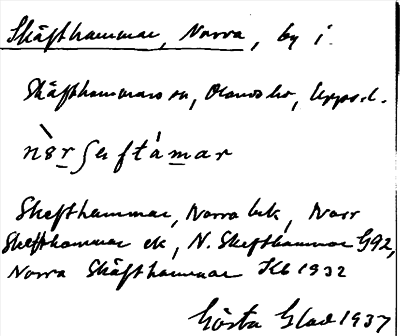 Skäfthammar, Norra, by i.
Skäfthammars sn, Olands hd, Upps. l.
Skefthammar, Norra bek, Norr
Skefthammar ek, N. Skefthammar G92,
Norra Skäfthammar Kb 1932
Gösta Glad 1937